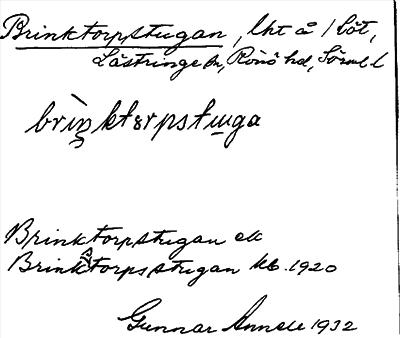 Brinktorpstugan, lht å 1 Löt,
Lästringe sn, Rönö hd, Sörml. l
brìŋktɔrpstɯga
Brinktorpstugan ek
Brinkstorpsstugan kb. 1920
Gunnar Annell 1932